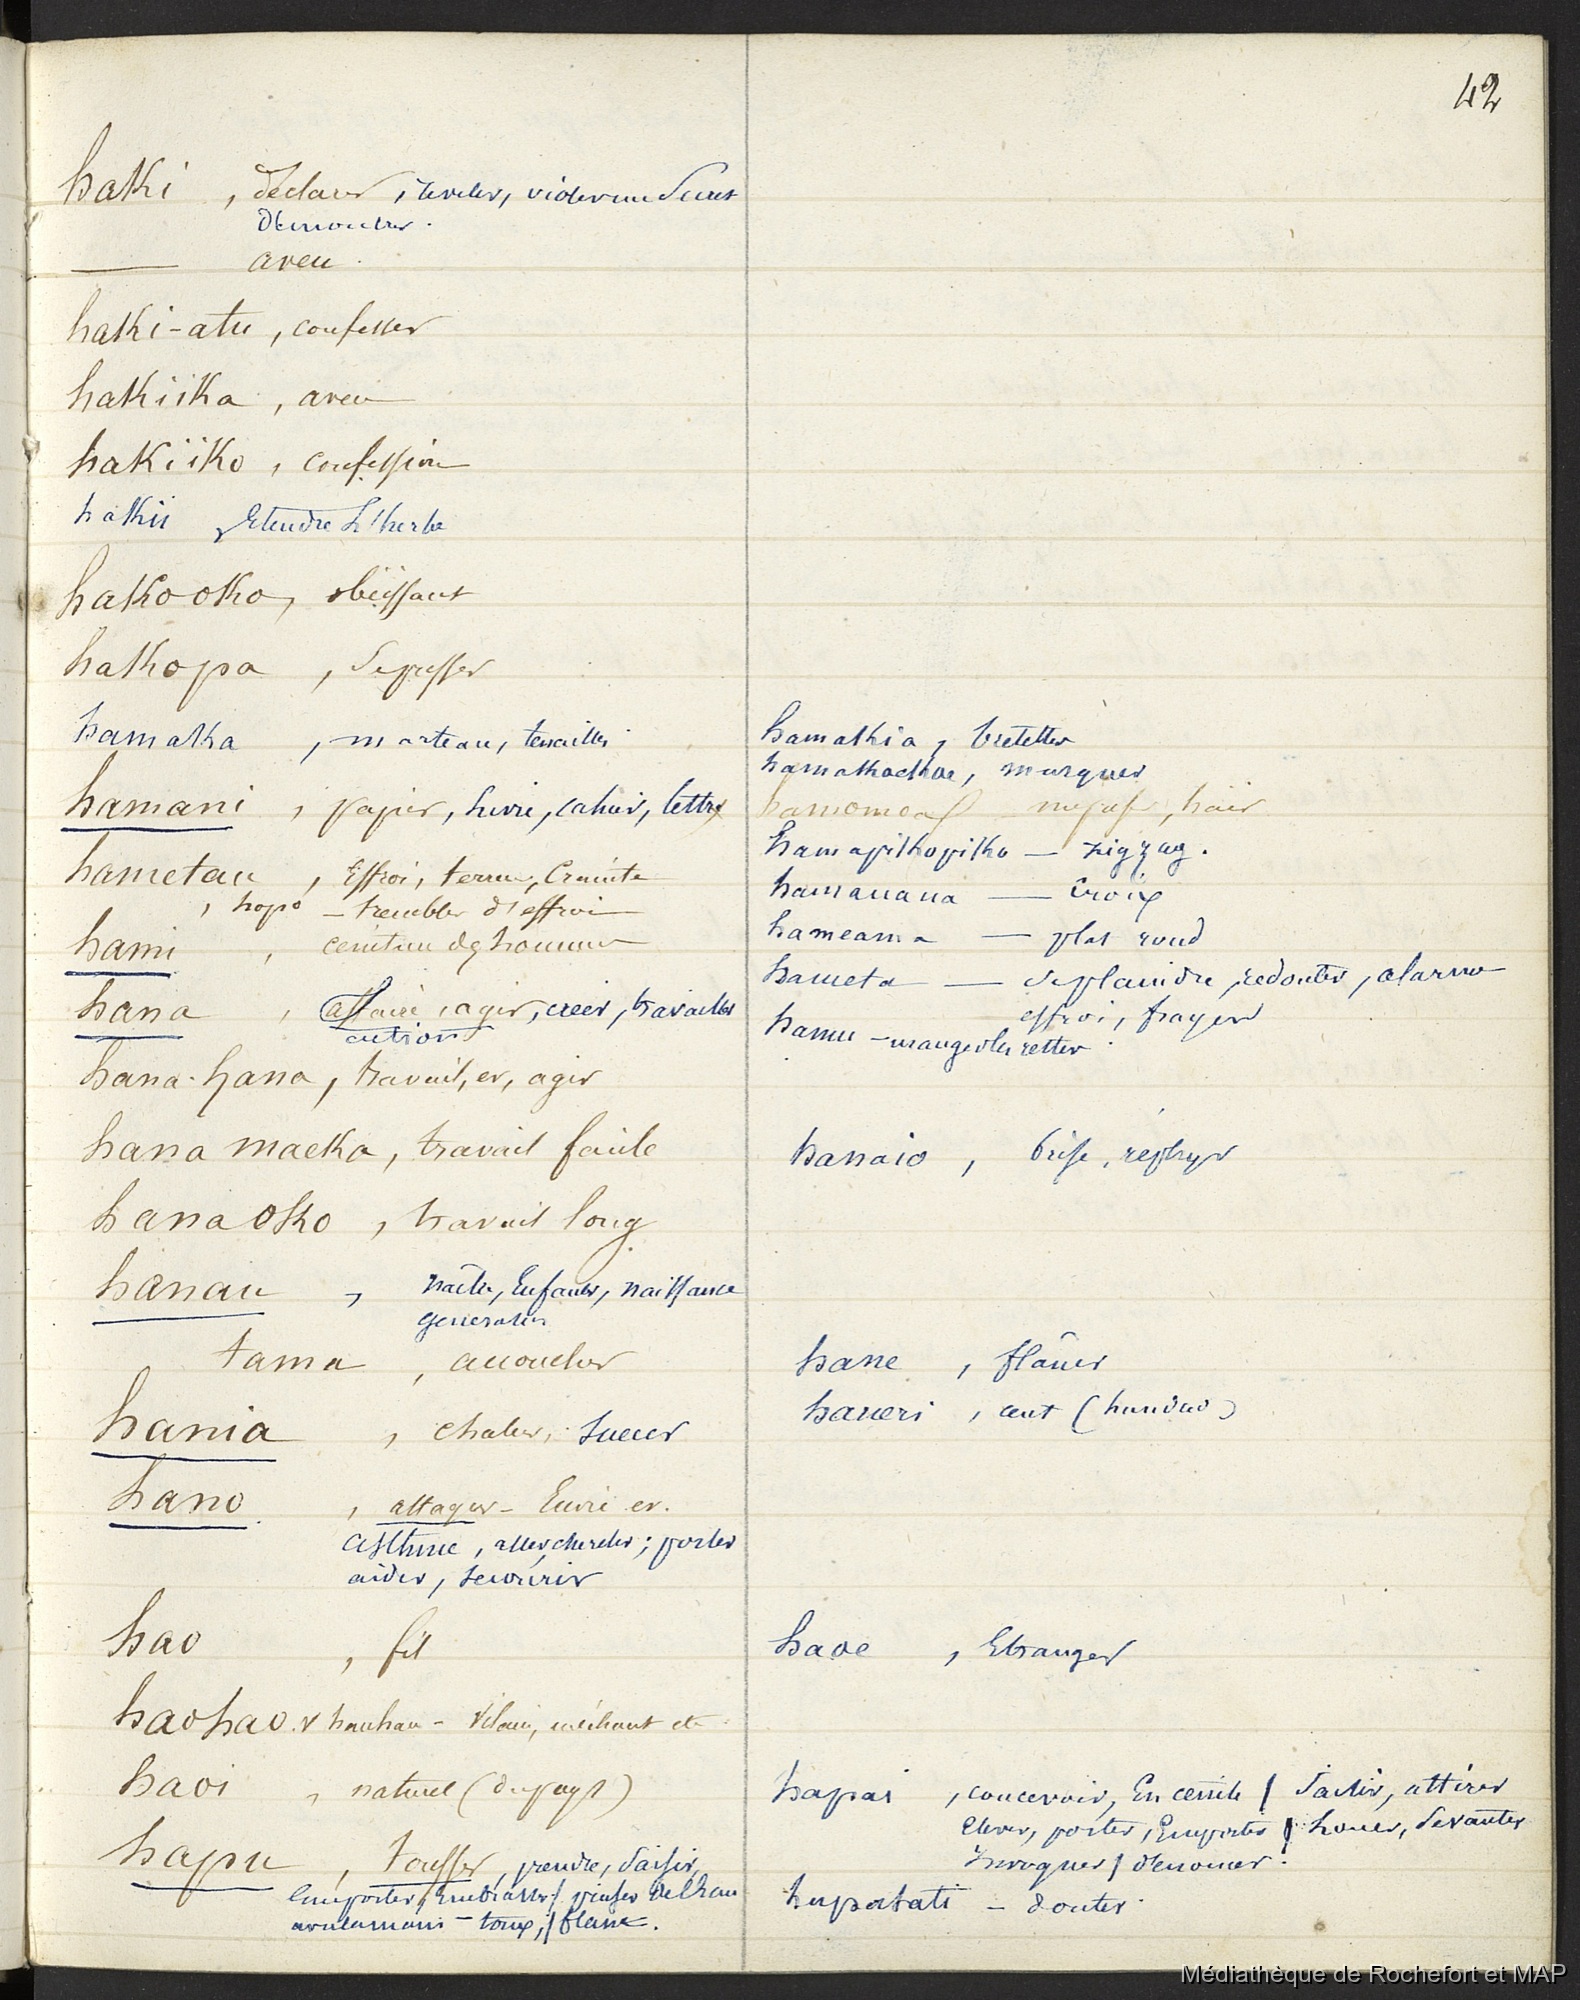 42
haki , déclarer , reveler, violer un Secret
Demontrer .
— aveu .
haki-atu , confesser
hakiika , aveu
hakiiko , confession
hakii , Etendre L'herbe
hakooko , obéissant
hakopa
hamaka , marteau, tenailles
hamani , papier, Livre, cahier, lettre
hametau , Effroi, terreur, Crainte
, hopo — trembler d'effroi
hami , ceinture des hommes
hana , affaire , agir, créer, travailler
action
hana-hana , travail, er, agir
hana maeka , travail facile
hanaoko , travail long
hanau , naître, Enfanter, naissance
generation
tama , accoucher
hania , chaleur, Sueur
hano , attaquer — Livré er.
asthme , aller chercher ; porter
aider , secourir
hao , fil
haohao v hauhau — Vilain, méchant etc
haoi , naturel (du pays)
hapu , tousser , prendre, Saisir,
Emporter, Embrasser / puiser De L'eau
avec la main — toux, / flanc .
hamakia , bretelles
hamakaekae , marquer
hamomoa haïr
hamapikopiko — zigzag .
hamanana — Croix
hameama — plat rond
hameta — Se plaindre, redouter, alarme
effroi, frayeur
hamu — manger les restes .
hanaio , brise , zéphyr
hane , flâner
haneri , cent (hundred)
haoe , Etranger
hapai , concevoir, Enceinte / Saisir, attirer
Elever, porter, Emporter / Louer, Se vanter
Invoquer / denoncer .
hapatati — douter .
Médiathèque de Rochefort et MAP